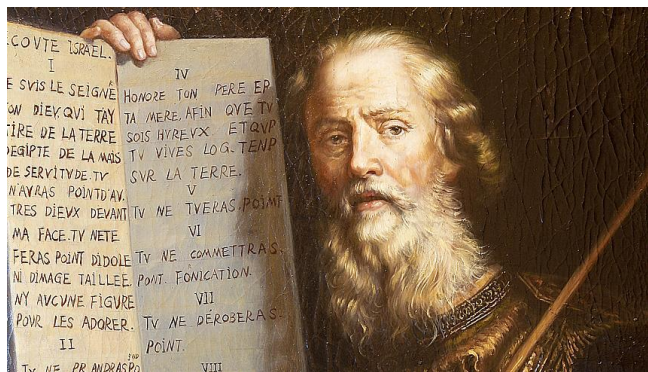 COVTE ISRAEL.
I
E SVIS LE SEIGNĒ
ON DIEV.QVI TAY
TIRE DE LA TERRE
DEGIPTE DE LA MAIS
DE SERVITVDE.TV
N'AVRAS POINT D'AV.
TRES DIEVX DEVANT
MA FACE.TV NETE
FERAS POINT DIDOLE
NI DIMAGE TAILLEE.
NY AVCVNE FIGVRE
POVR LES ADORER.
II
TV NE PRANDRAS PO
IV
HONORE TON PERE ET
TA MERE, AFIN QVE TV
SOIS HVREVX. ETQVP
TV VIVES LOG. TENP
SVR LA TERRE.
V
TV NE TVERAS.POINT
VI
TV NE COMMETTRAS.
PONT. FONICATION.
VII
TV NE DÉROBERAS.
POINT.
VIII